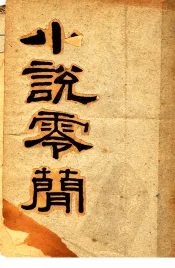 小說零簡